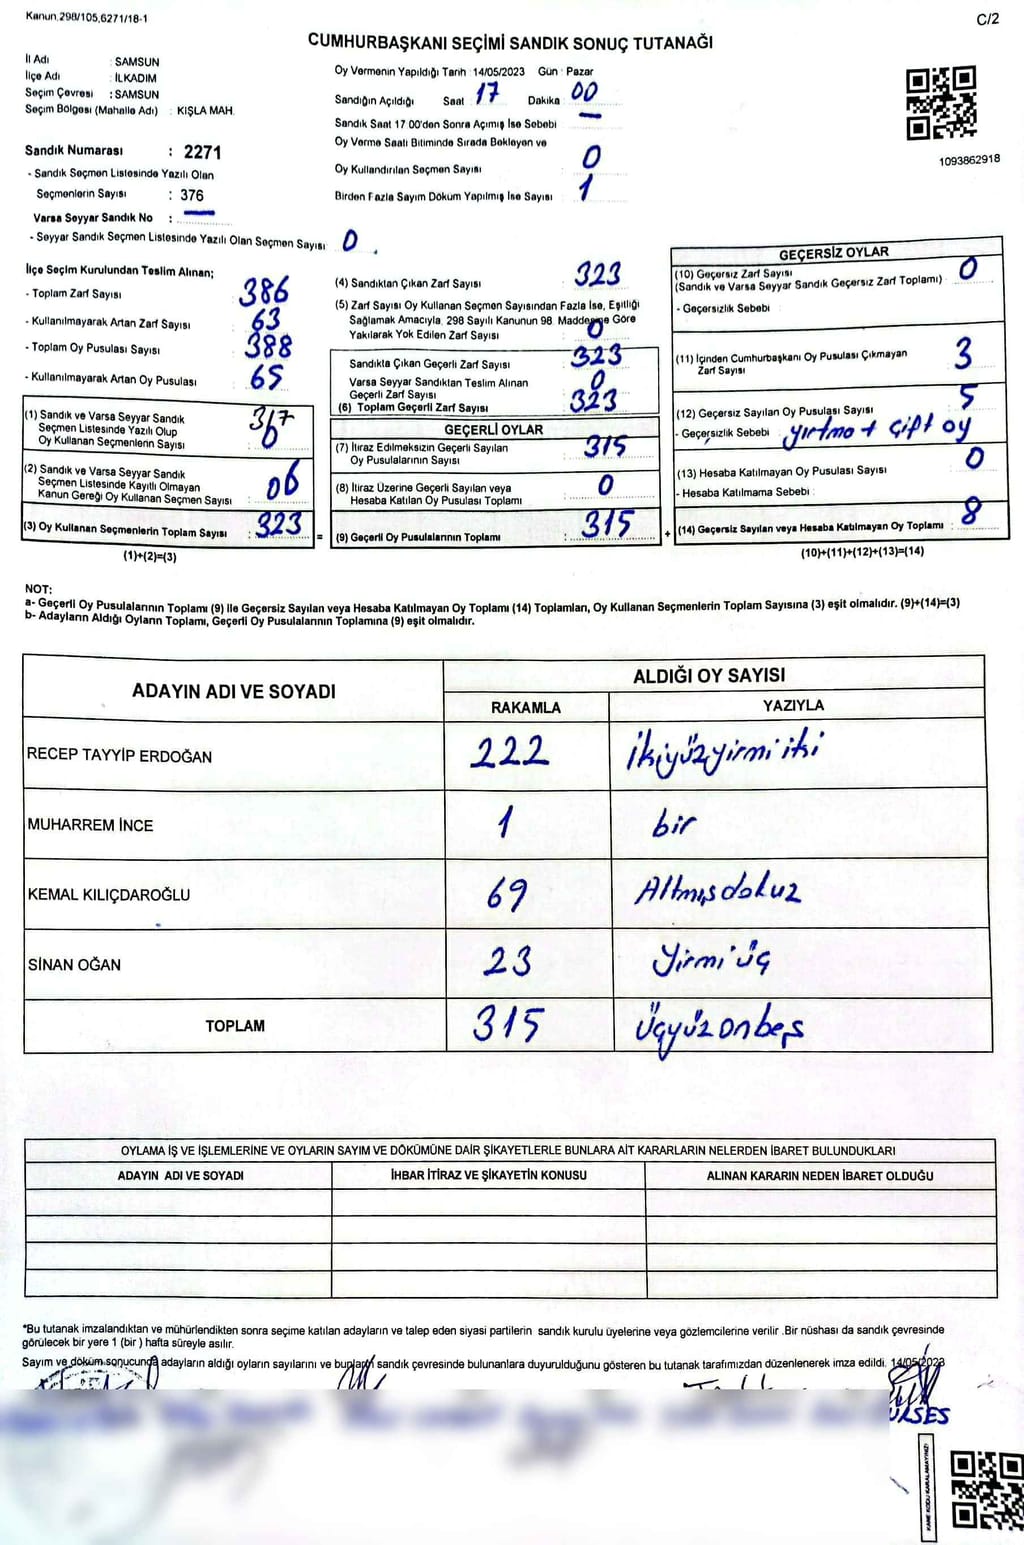 Kanun.298/105,6271/18-1
C/2
CUMHURBAŞKANI SEÇİMİ SANDIK SONUÇ TUTANAĞI
İl Adı : SAMSUN
İlçe Adı : İLKADIM
Seçim Çevresi : SAMSUN
Seçim Bölgesi (Mahalle Adı) : KIŞLA MAH.
Sandık Numarası : 2271
- Sandık Seçmen Listesinde Yazılı Olan
Seçmenlerin Sayısı : 376
Varsa Seyyar Sandık No :
- Seyyar Sandık Seçmen Listesinde Yazılı Olan Seçmen Sayısı 0
Oy Vermenin Yapıldığı Tarih : 14/05/2023 Gün : Pazar
Sandığın Açıldığı Saat 17 Dakika 00
Sandık Saat 17 00'den Sonra Açımış İse Sebebi
Oy Verme Saati Bitiminde Sırada Bekleyen ve
Oy Kullandırılan Seçmen Sayısı 0
Birden Fazla Sayım Döküm Yapılmış İse Sayısı 1
1093862918
İlçe Seçim Kurulundan Teslim Alınan;
- Toplam Zarf Sayısı 386
- Kullanılmayarak Artan Zarf Sayısı 63
- Toplam Oy Pusulası Sayısı 388
- Kullanılmayarak Artan Oy Pusulası 65
(1) Sandık ve Varsa Seyyar Sandık
Seçmen Listesinde Yazılı Olup
Oy Kullanan Seçmenlerin Sayısı
(2) Sandık ve Varsa Seyyar Sandık
Seçmen Listesinde Kayıtlı Olmayan
Kanun Gereği Oy Kullanan Seçmen Sayısı 06
(3) Oy Kullanan Seçmenlerin Toplam Sayısı : 323 =
(1)+(2)=(3)
(4) Sandıktan Çıkan Zarf Sayısı 323
(5) Zarf Sayısı Oy Kullanan Seçmen Sayısından Fazla İse, Eşitliği
Sağlamak Amacıyla, 298 Sayılı Kanunun 98. Maddesine Göre
Yakılarak Yok Edilen Zarf Sayısı 0
Sandıkta Çıkan Geçerli Zarf Sayısı 323
Varsa Seyyar Sandıktan Teslim Alınan
Geçerli Zarf Sayısı 0
(6) Toplam Geçerli Zarf Sayısı 323
GEÇERLİ OYLAR
(7) İtiraz Edilmeksizin Geçerli Sayılan
Oy Pusulalarının Sayısı 315
(8) İtiraz Üzerine Geçerli Sayılan veya
Hesaba Katılan Oy Pusulası Toplamı 0
(9) Geçerli Oy Pusulalarının Toplamı : 315 +
GEÇERSİZ OYLAR
(10) Geçersiz Zarf Sayısı
(Sandık ve Varsa Seyyar Sandık Geçersiz Zarf Toplamı) : 0
- Geçersizlik Sebebi
(11) İçinden Cumhurbaşkanı Oy Pusulası Çıkmayan
Zarf Sayısı 3
(12) Geçersiz Sayılan Oy Pusulası Sayısı 5
- Geçersizlik Sebebi : yırtma + çift oy
(13) Hesaba Katılmayan Oy Pusulası Sayısı 0
- Hesaba Katılmama Sebebi :
(14) Geçersiz Sayılan veya Hesaba Katılmayan Oy Toplamı : 8
(10)+(11)+(12)+(13)=(14)
NOT:
a- Geçerli Oy Pusulalarının Toplamı (9) ile Geçersiz Sayılan veya Hesaba Katılmayan Oy Toplamı (14) Toplamları, Oy Kullanan Seçmenlerin Toplam Sayısına (3) eşit olmalıdır. (9)+(14)=(3)
b- Adayların Aldığı Oyların Toplamı, Geçerli Oy Pusulalarının Toplamına (9) eşit olmalıdır.
ADAYIN ADI VE SOYADI
ALDIĞI OY SAYISI
RAKAMLA YAZIYLA
RECEP TAYYİP ERDOĞAN 222 İkiyüzyirmi iki
MUHARREM İNCE 1 bir
KEMAL KILIÇDAROĞLU 69 Altmışdokuz
SİNAN OĞAN 23 Yirmi üç
TOPLAM 315 Üçyüz onbeş
OYLAMA İŞ VE İŞLEMLERİNE VE OYLARIN SAYIM VE DÖKÜMÜNE DAİR ŞİKAYETLERLE BUNLARA AİT KARARLARIN NELERDEN İBARET BULUNDUKLARI
ADAYIN ADI VE SOYADI İHBAR İTİRAZ VE ŞİKAYETİN KONUSU ALINAN KARARIN NEDEN İBARET OLDUĞU
*Bu tutanak imzalandıktan ve mühürlendikten sonra seçime katılan adayların ve talep eden siyasi partilerin sandık kurulu üyelerine veya gözlemcilerine verilir .Bir nüshası da sandık çevresinde
görülecek bir yere 1 (bir ) hafta süreyle asılır.
Sayım ve döküm sonucunda adayların aldığı oyların sayılarını ve bunların sandık çevresinde bulunanlara duyurulduğunu gösteren bu tutanak tarafımızdan düzenlenerek imza edildi. 14/05/2023
KARE KODU KARALAMAYINIZ!